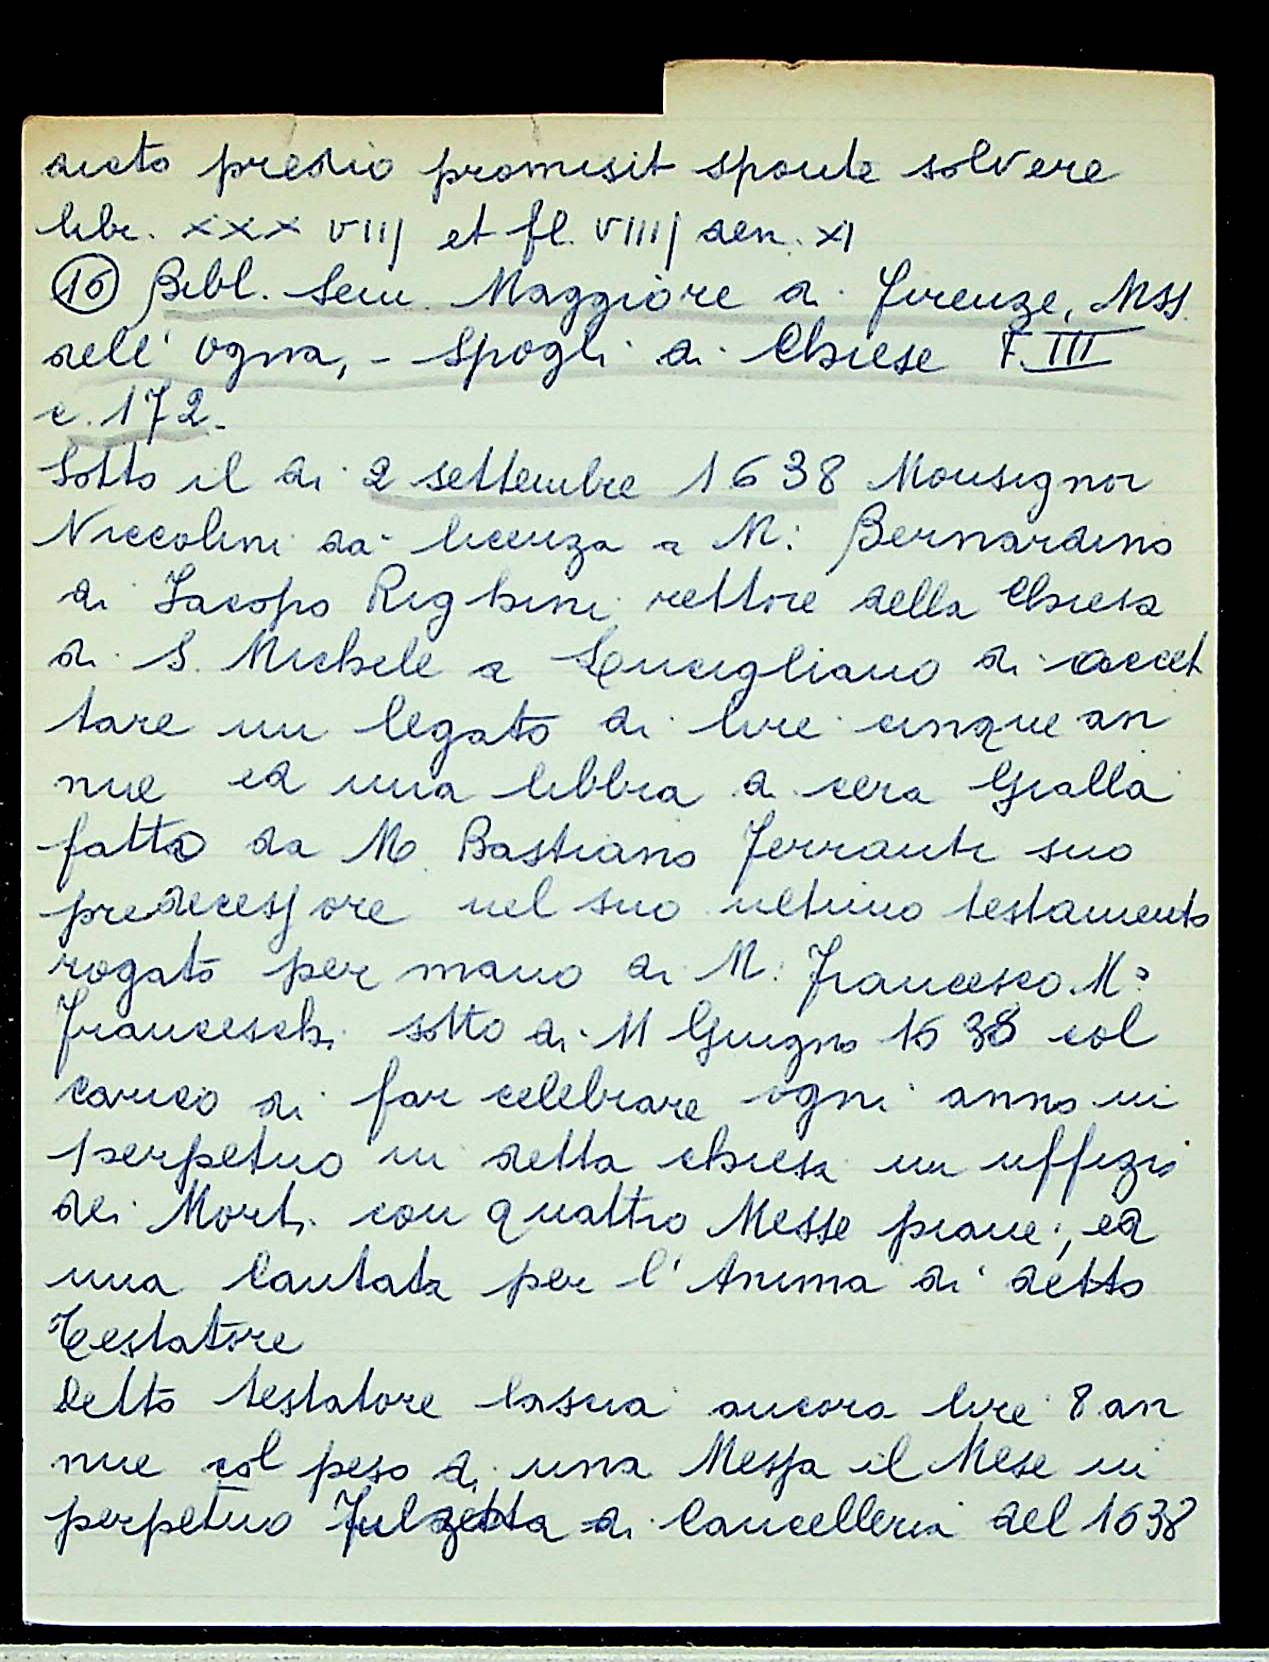 dicto predio promisit sponte solvere
libr. XXX VIIJ et fl. VIIIJ den. XI
16 Bibl. Sem. Maggiore di Firenze, MSS.
dell' Ogna, - Spogli di Chiese F. III
c. 172.
Sotto il di 2 settembre 1638 Monsignor
Niccolini da licenza a M: Bernardino
di Jacopo Righini rettore della Chiesa
di S. Michele a Lucigliano di accet
tare un legato di lire cinque an
nue ed una libbra di cera Gialla
fatto da M. Bastiano Ferranti suo
predecessore nel suo ultimo testamento
rogato per mano di M: Francesco Mª
Franceschi sotto di 11 Giugno 1638 col
carico di far celebrare ogni anno in
perpetuo in detta chiesa un uffizio
dei Morti con quattro Messe piane, ed
una Cantata per l'Anima di detto
Testatore
Detto testatore lascia ancora lire 8 an
nue col peso di una Messa il Mese in
perpetuo Filzetta di Cancelleria del 1638